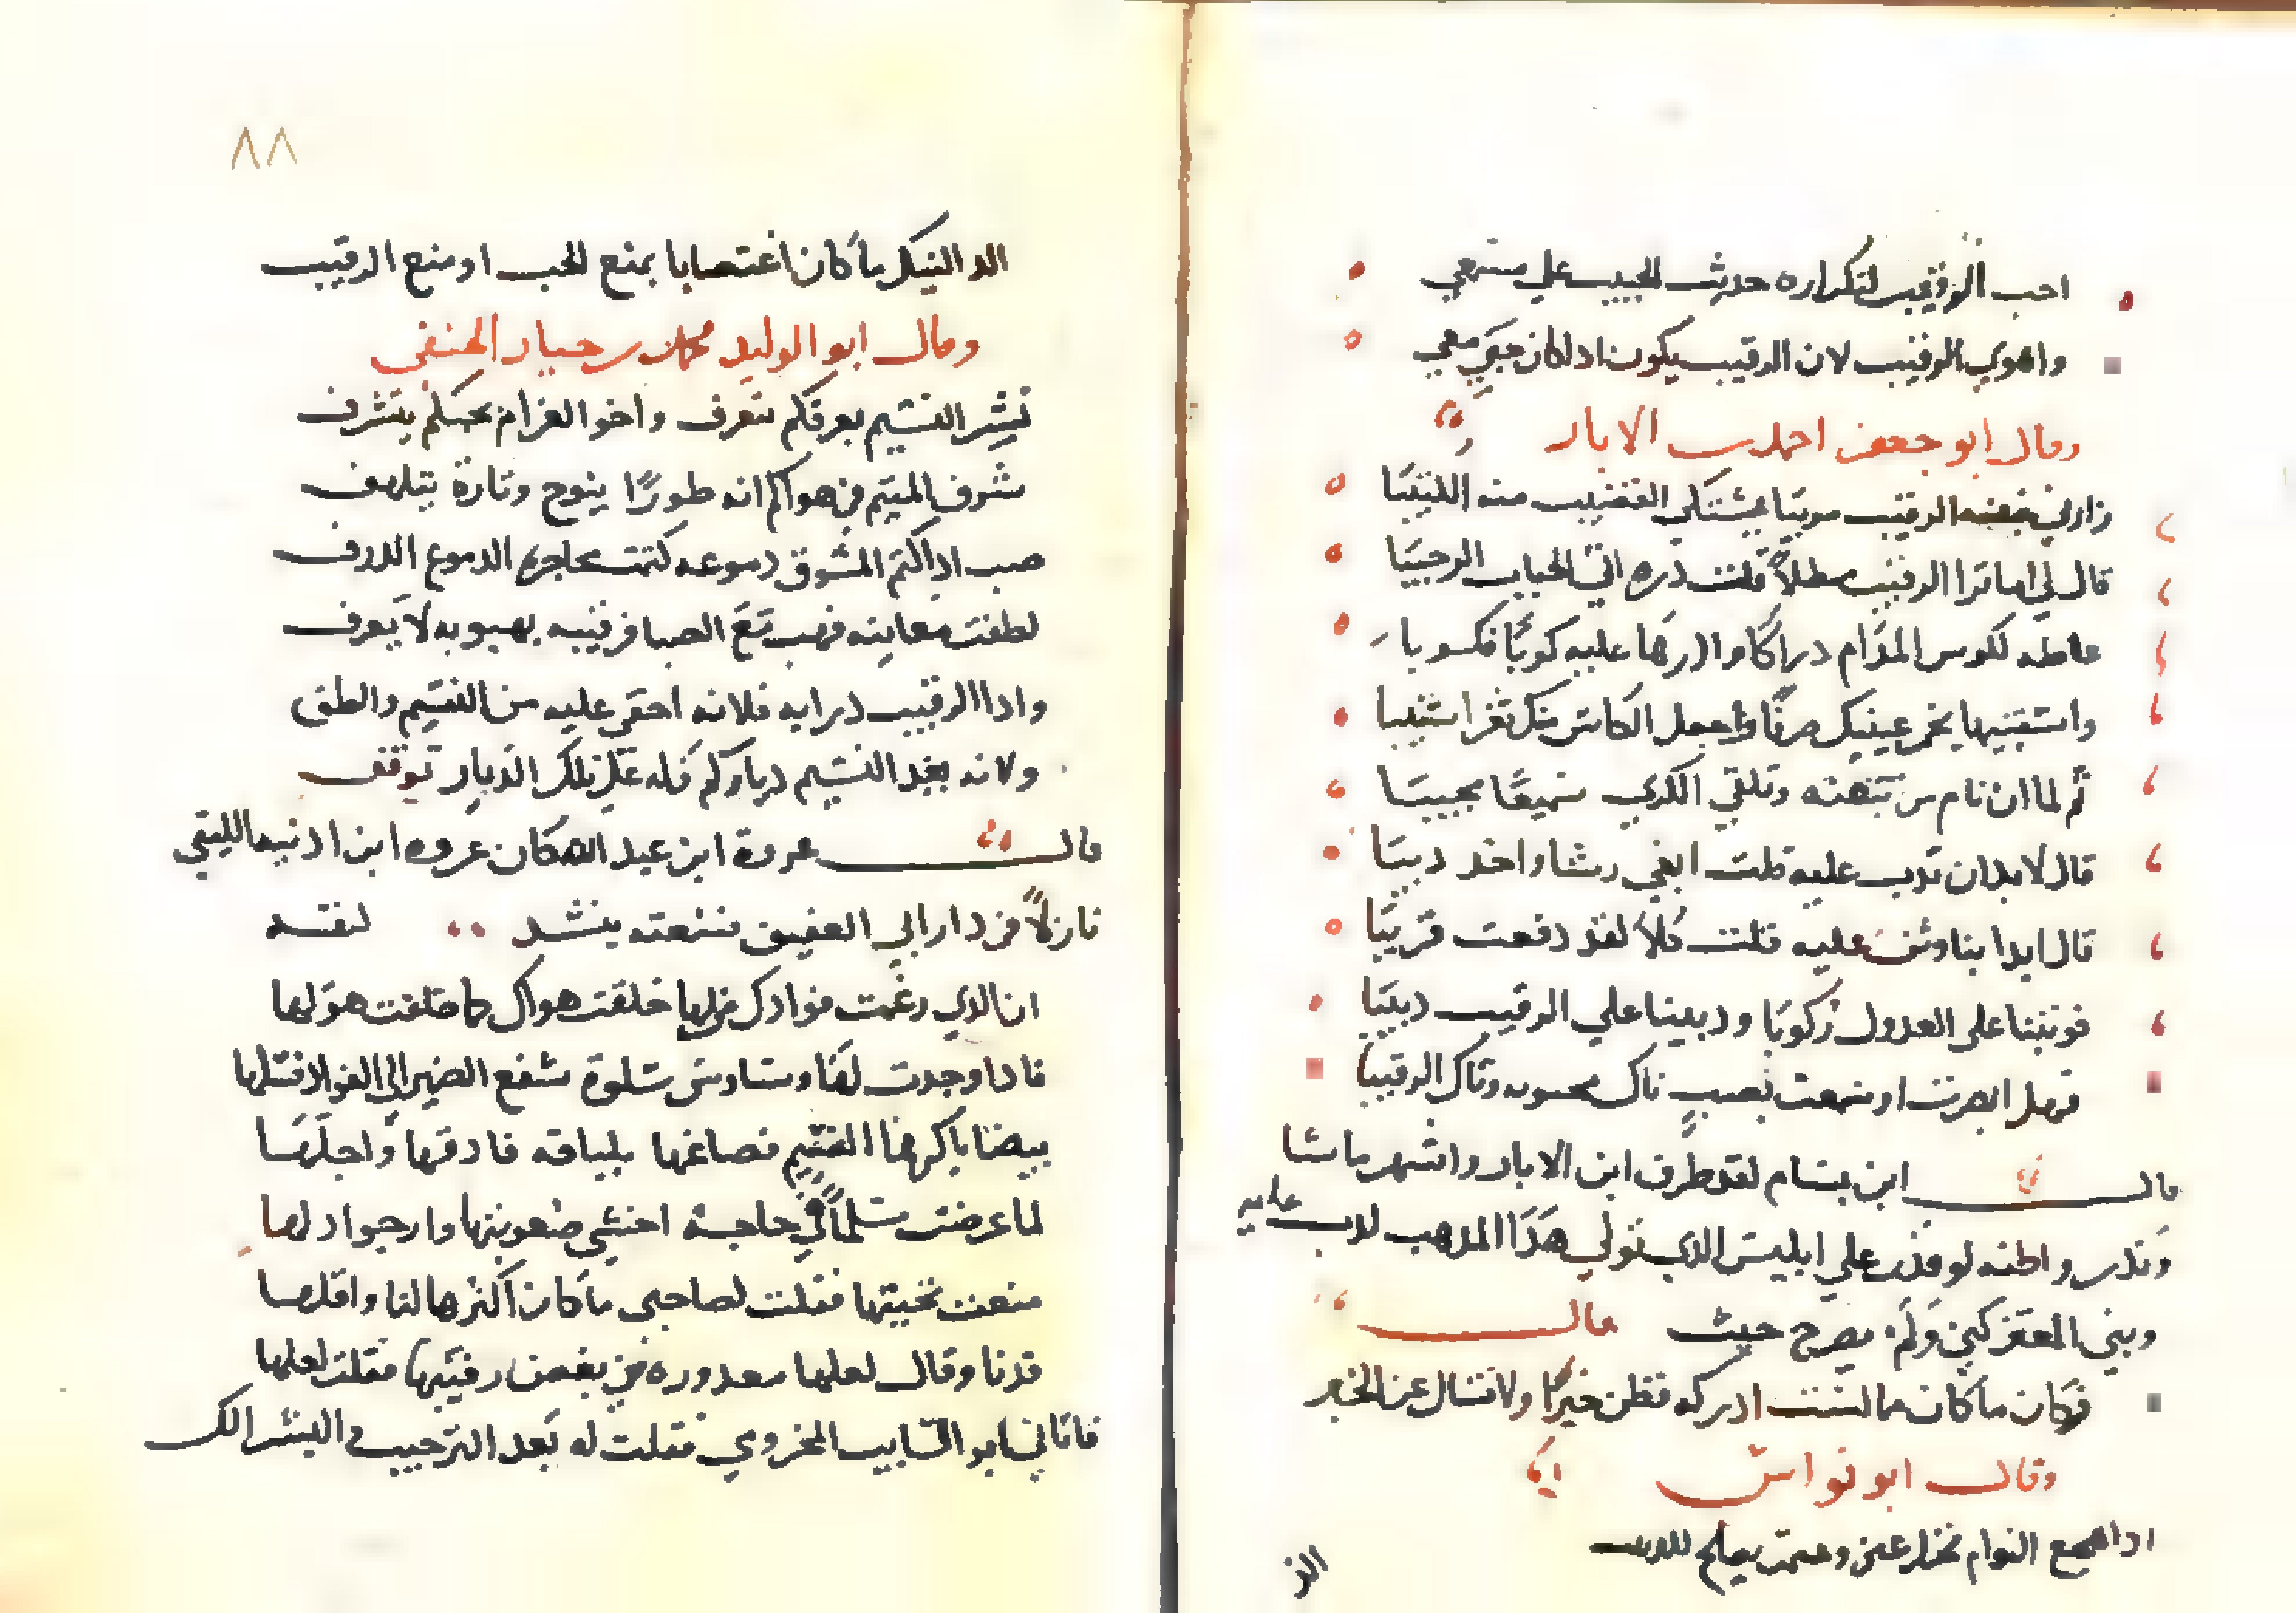 احب الرقيب لتكراره حديث الحبيب علي مسمعي
واهوي الرقيب لان الرقيب يكون اذا كان حبي معي
وقال ابو جعفر احمد بن الابار
زارني خيفه الرقيب مريبا يشتكي القضيب منه الكثيبا
قال لي اما ترا الرقيب مطلا قلت ذره اتي الجناب الرحيبا
عاطه لكوس المدام دراكا وادرها عليه كوبا فكوبا
واسقنيها بخمر عينيك صرفا واجعل الكاس منك ثغرا شنيبا
ثم لما ان نام من نتقيه وتلقي الكري سميعا مجيبا
قال لا بد ان تدب عليه قلت ابغي رشا واخذ ديبا
قال ابدا بنا وثن عليه قلت كلا لقد دفعت قريبا
فوثبنا على الغزال ركوبا ودبينا علي الرقيب دبيبا
فهل ابصرت او سمعت بصب ناك محبوبه وناك الرقيبا
قال ابن بسام لقد ظرف ابن الابار واشهر ما شا
وندر واظنه لو قدر علي ابليس الذي تولي هذا المذهب لدب عليه
وبني المعتز كني ولم يصرح حيث قال
فكان ما كان مما لست اذكره فظن خيرا ولا تسال عن الخبر
وقال ابو نواس
اذا هجع النوام نخرا عني وعمن يصلح للدبيب
الذ
٨٨
الذ النيك ما كان اغتصابا بمنع الحب او منع الرقيب
وقال ابو الوليد محمد بن حيان الحنفي
نشر النسيم بعرفكم يتعرف واخو الغرام بحبكم يتشرف
شرف المتيم في هواكم انه طورا ينوح وتارة يتلهف
صب اذا كتم المشوق دموعه كتمت محاجره الدموع الذرف
لطفت معانيه فهب مع الصبا فرقيبه بهبوبه لا يعرف
واذا الرقيب درا به فلانه اخفي عليه من النسيم والطف
ولانه بغد النسيم دياركم فله على تلك الديار توقف
قال عروة ابن عبيد الله كان عروه ابن اذنيه الليثي
نازلا في دار ابي العقيق فسمعته ينشد لنفسه
ان الذي رغمت فوادك ملها خلقت هواك كما خلقت هوا لها
فاذا وجدت لها وساوس سلوة شفع الضمير الي الفواد فسلها
بيضا باكرها النعيم فصاغها بلباقه فادقها واجلها
لما عرضت مسلما لي حاجة اخشي صعوبتها وارجوا ذلها
منعت تحيتها فقلت لصاحبي ما كان اكثرها لنا واقلها
فدنا وقال لعلها معذوره من بعض رقبتها فقلت لعلها
فاتاني ابو السايب المخزومي فقلت له بعد الترحيب والبشر الك